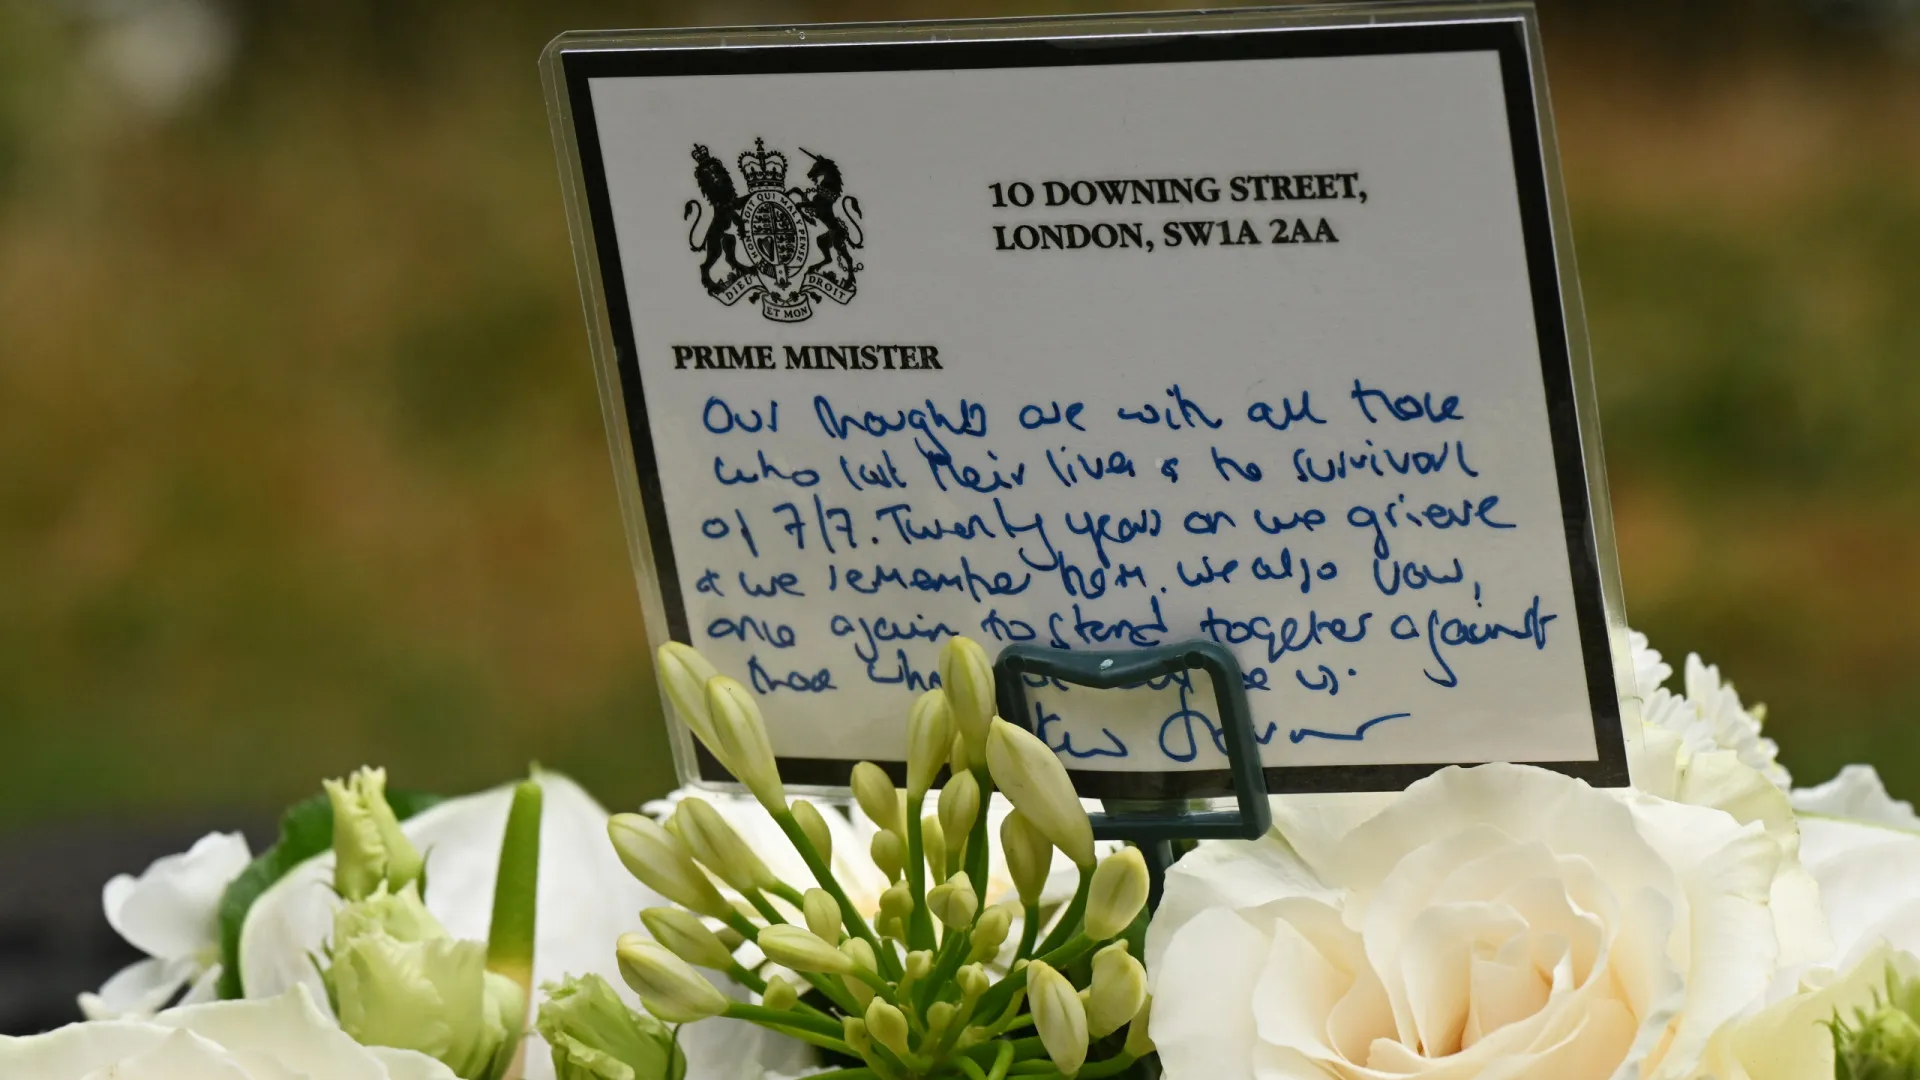 HONI SOIT QUI MAL Y PENSE
DIEU ET MON DROIT
10 DOWNING STREET,
LONDON, SW1A 2AA
PRIME MINISTER
Our thoughts are with all those
who lost their lives & the survivors
of 7/7. Twenty years on we grieve
& we remember them. We also vow,
once again to stand together against
those who us.
Keir Starmer